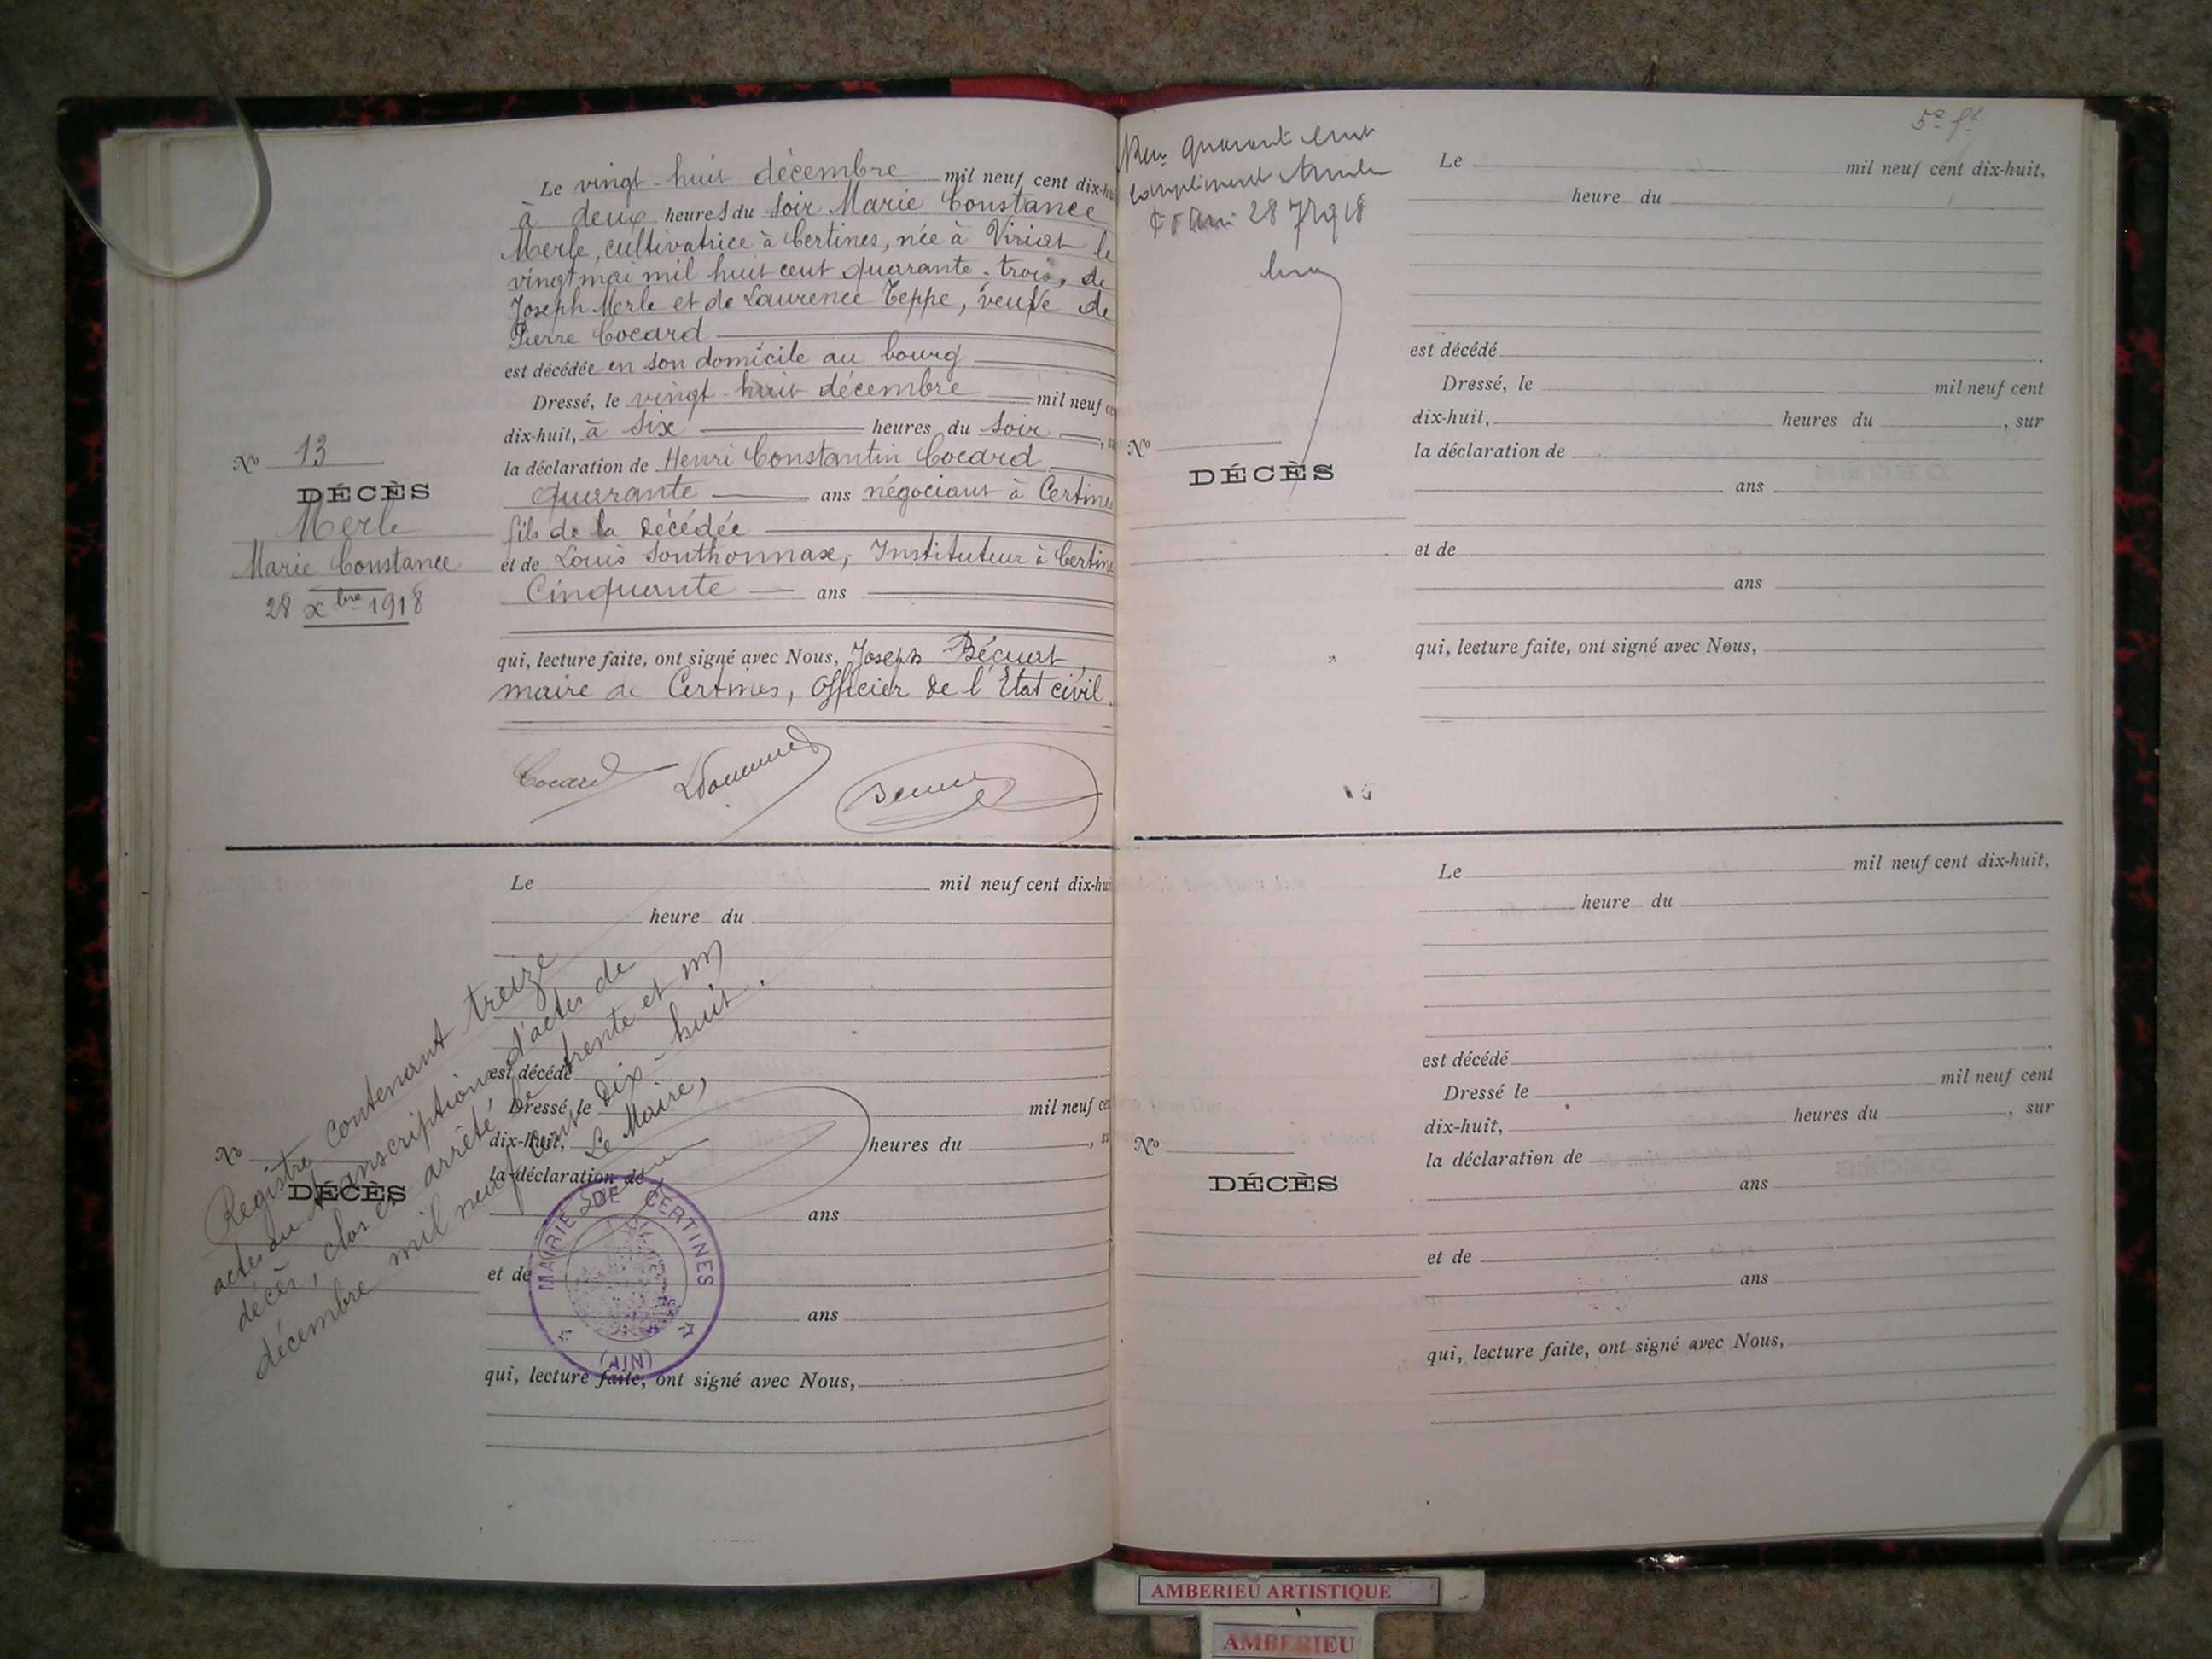 Le vingt-huit décembre mil neuf cent dix-hu
à deux heures du soir Marie Constance
Merle, cultivatrice à Certines, née à Viriat le
vingt mai mil huit cent quarante-trois, de
Joseph Merle et de Laurence Teppe, veuve de
Pierre Cocard
est décédée en son domicile au bourg
Dressé, le vingt-huit décembre mil neuf ce
dix-huit, à six heures du soir
la déclaration de Henri Constantin Cocard
quarante ans négociant à Certines
fils de la décédée
et de Louis Southonnax, Instituteur à Certin
Cinquante ans
qui, lecture faite, ont signé avec Nous, Joseph
maire de Certines, officier de l'Etat civil.
Cocard
No 13
DÉCÈS
Merle
Marie Constance
28 xbre 1918
Le mil neuf cent dix-hu
heure du
est décédé
Dressé, le mil neuf ce
dix-huit, heures du , s
la déclaration de
ans
et de
ans
qui, lecture faite, ont signé avec Nous,
No
DÉCÈS
Registre contenant treize
actes ou transcriptions d'actes de
décès, clos et arrêté le trente et un
décembre mil neuf cent dix-huit.
Le Maire,
MAIRIE DE CERTINES
(AIN)
28 7 1918
Le mil neuf cent dix-huit,
heure du
est décédé
Dressé, le mil neuf cent
dix-huit, heures du , sur
la déclaration de
ans
et de
ans
qui, lecture faite, ont signé avec Nous,
No
DÉCÈS
Le mil neuf cent dix-huit,
heure du
est décédé
Dressé le mil neuf cent
dix-huit, heures du , sur
la déclaration de
ans
et de
ans
qui, lecture faite, ont signé avec Nous,
No
DÉCÈS
AMBERIEU ARTISTIQUE
AMBERIEU